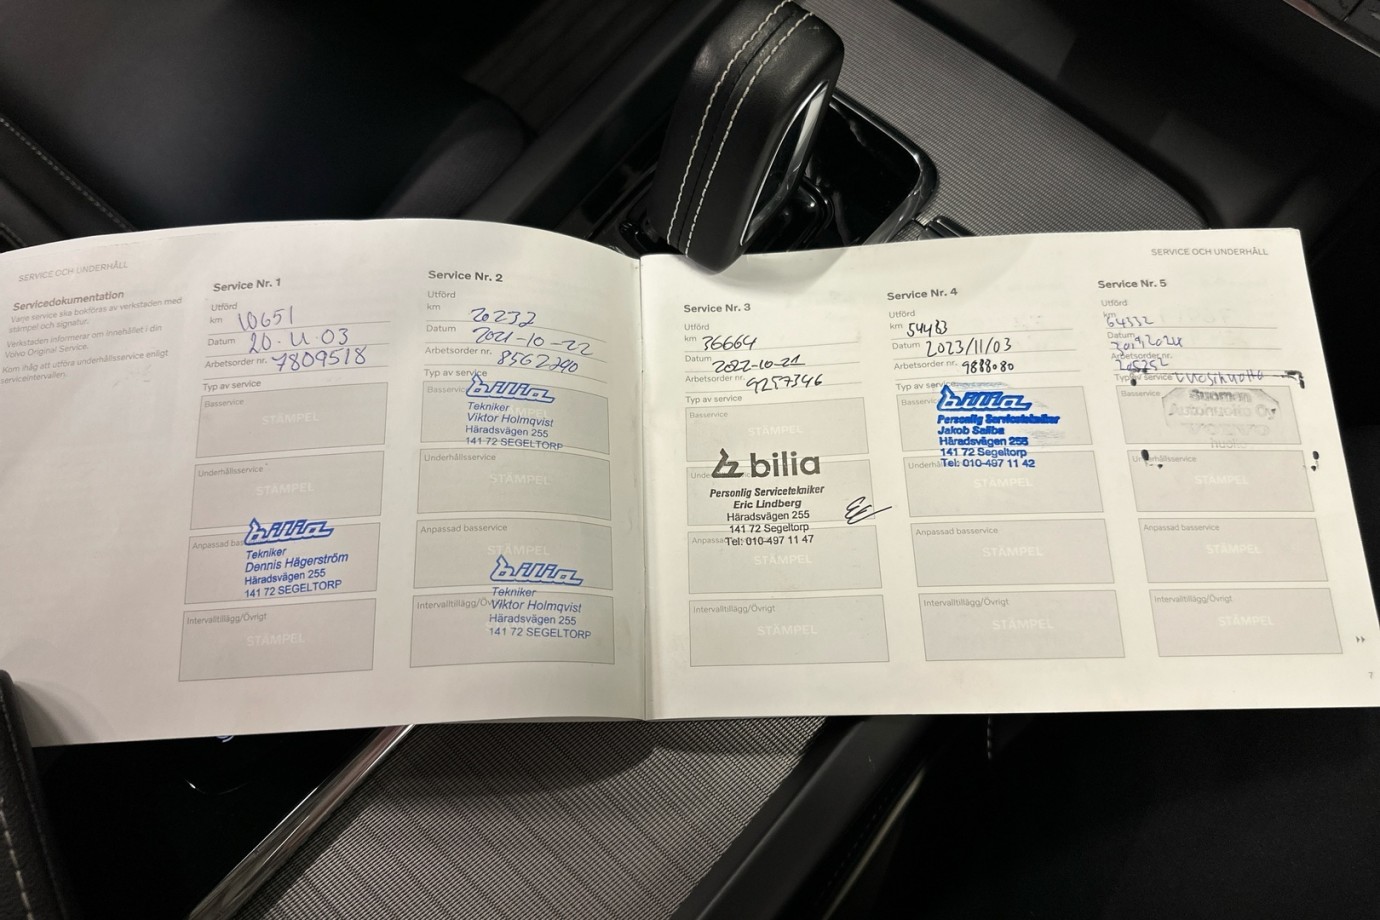 SERVICE OCH UNDERHÅLL
Servicedokumentation
Varje service ska bokföras av verkstaden med
stämpel och signatur.
Verkstaden informerar om innehållet i din
Volvo Original Service.
Kom ihåg att utföra underhållsservice enligt
serviceintervallen.
Service Nr. 1
Utförd
km 10651
Datum 20-11-03
Arbetsorder nr. 7809518
Typ av service
Basservice
STÄMPEL
Underhållsservice
STÄMPEL
Anpassad
bilia
Tekniker
Dennis Hägerström
Häradsvägen 255
141 72 SEGELTORP
Intervalltillägg/Övrigt
STÄMPEL
Service Nr. 2
Utförd
km 20232
Datum 2021-10-22
Arbetsorder nr. 8562290
Typ av service
Basservice
STÄMPEL
bilia
Tekniker
Viktor Holmqvist
Häradsvägen 255
141 72 SEGELTORP
Underhållsservice
STÄMPEL
Anpassad basservice
STÄMPEL
bilia
Tekniker
Intervalltillägg/Öv
Viktor Holmqvist
Häradsvägen 255
141 72 SEGELTORP
SERVICE OCH UNDERHÅLL
Service Nr. 3
Utförd
km 36664
Datum 2022-10-21
Arbetsorder nr. 9257346
Typ av service
Basservice
STÄMPEL
bilia
Personlig Servicetekniker
Eric Lindberg
Häradsvägen 255
141 72 Segeltorp
Tel: 010-497 11 47
STÄMPEL
Intervalltillägg/Övrigt
STÄMPEL
Service Nr. 4
Utförd
km 54483
Datum 2023/11/03
Arbetsorder nr. 9888080
Typ av service
Basservice
bilia
Personlig Servicetekniker
Jakob Saliba
Häradsvägen 255
141 72 Segeltorp
Tel: 010-497 11 42
STÄMPEL
Anpassad basservice
STÄMPEL
Intervalltillägg/Övrigt
STÄMPEL
Service Nr. 5
Utförd
km
64332
Datum
Arbetsorder nr.
Typ av service Vuosihuolto
Basservice
Suomen
Autohuolto Oy
Underhållsservice
STÄMPEL
Anpassad basservice
STÄMPEL
Intervalltillägg/Övrigt
STÄMPEL
7